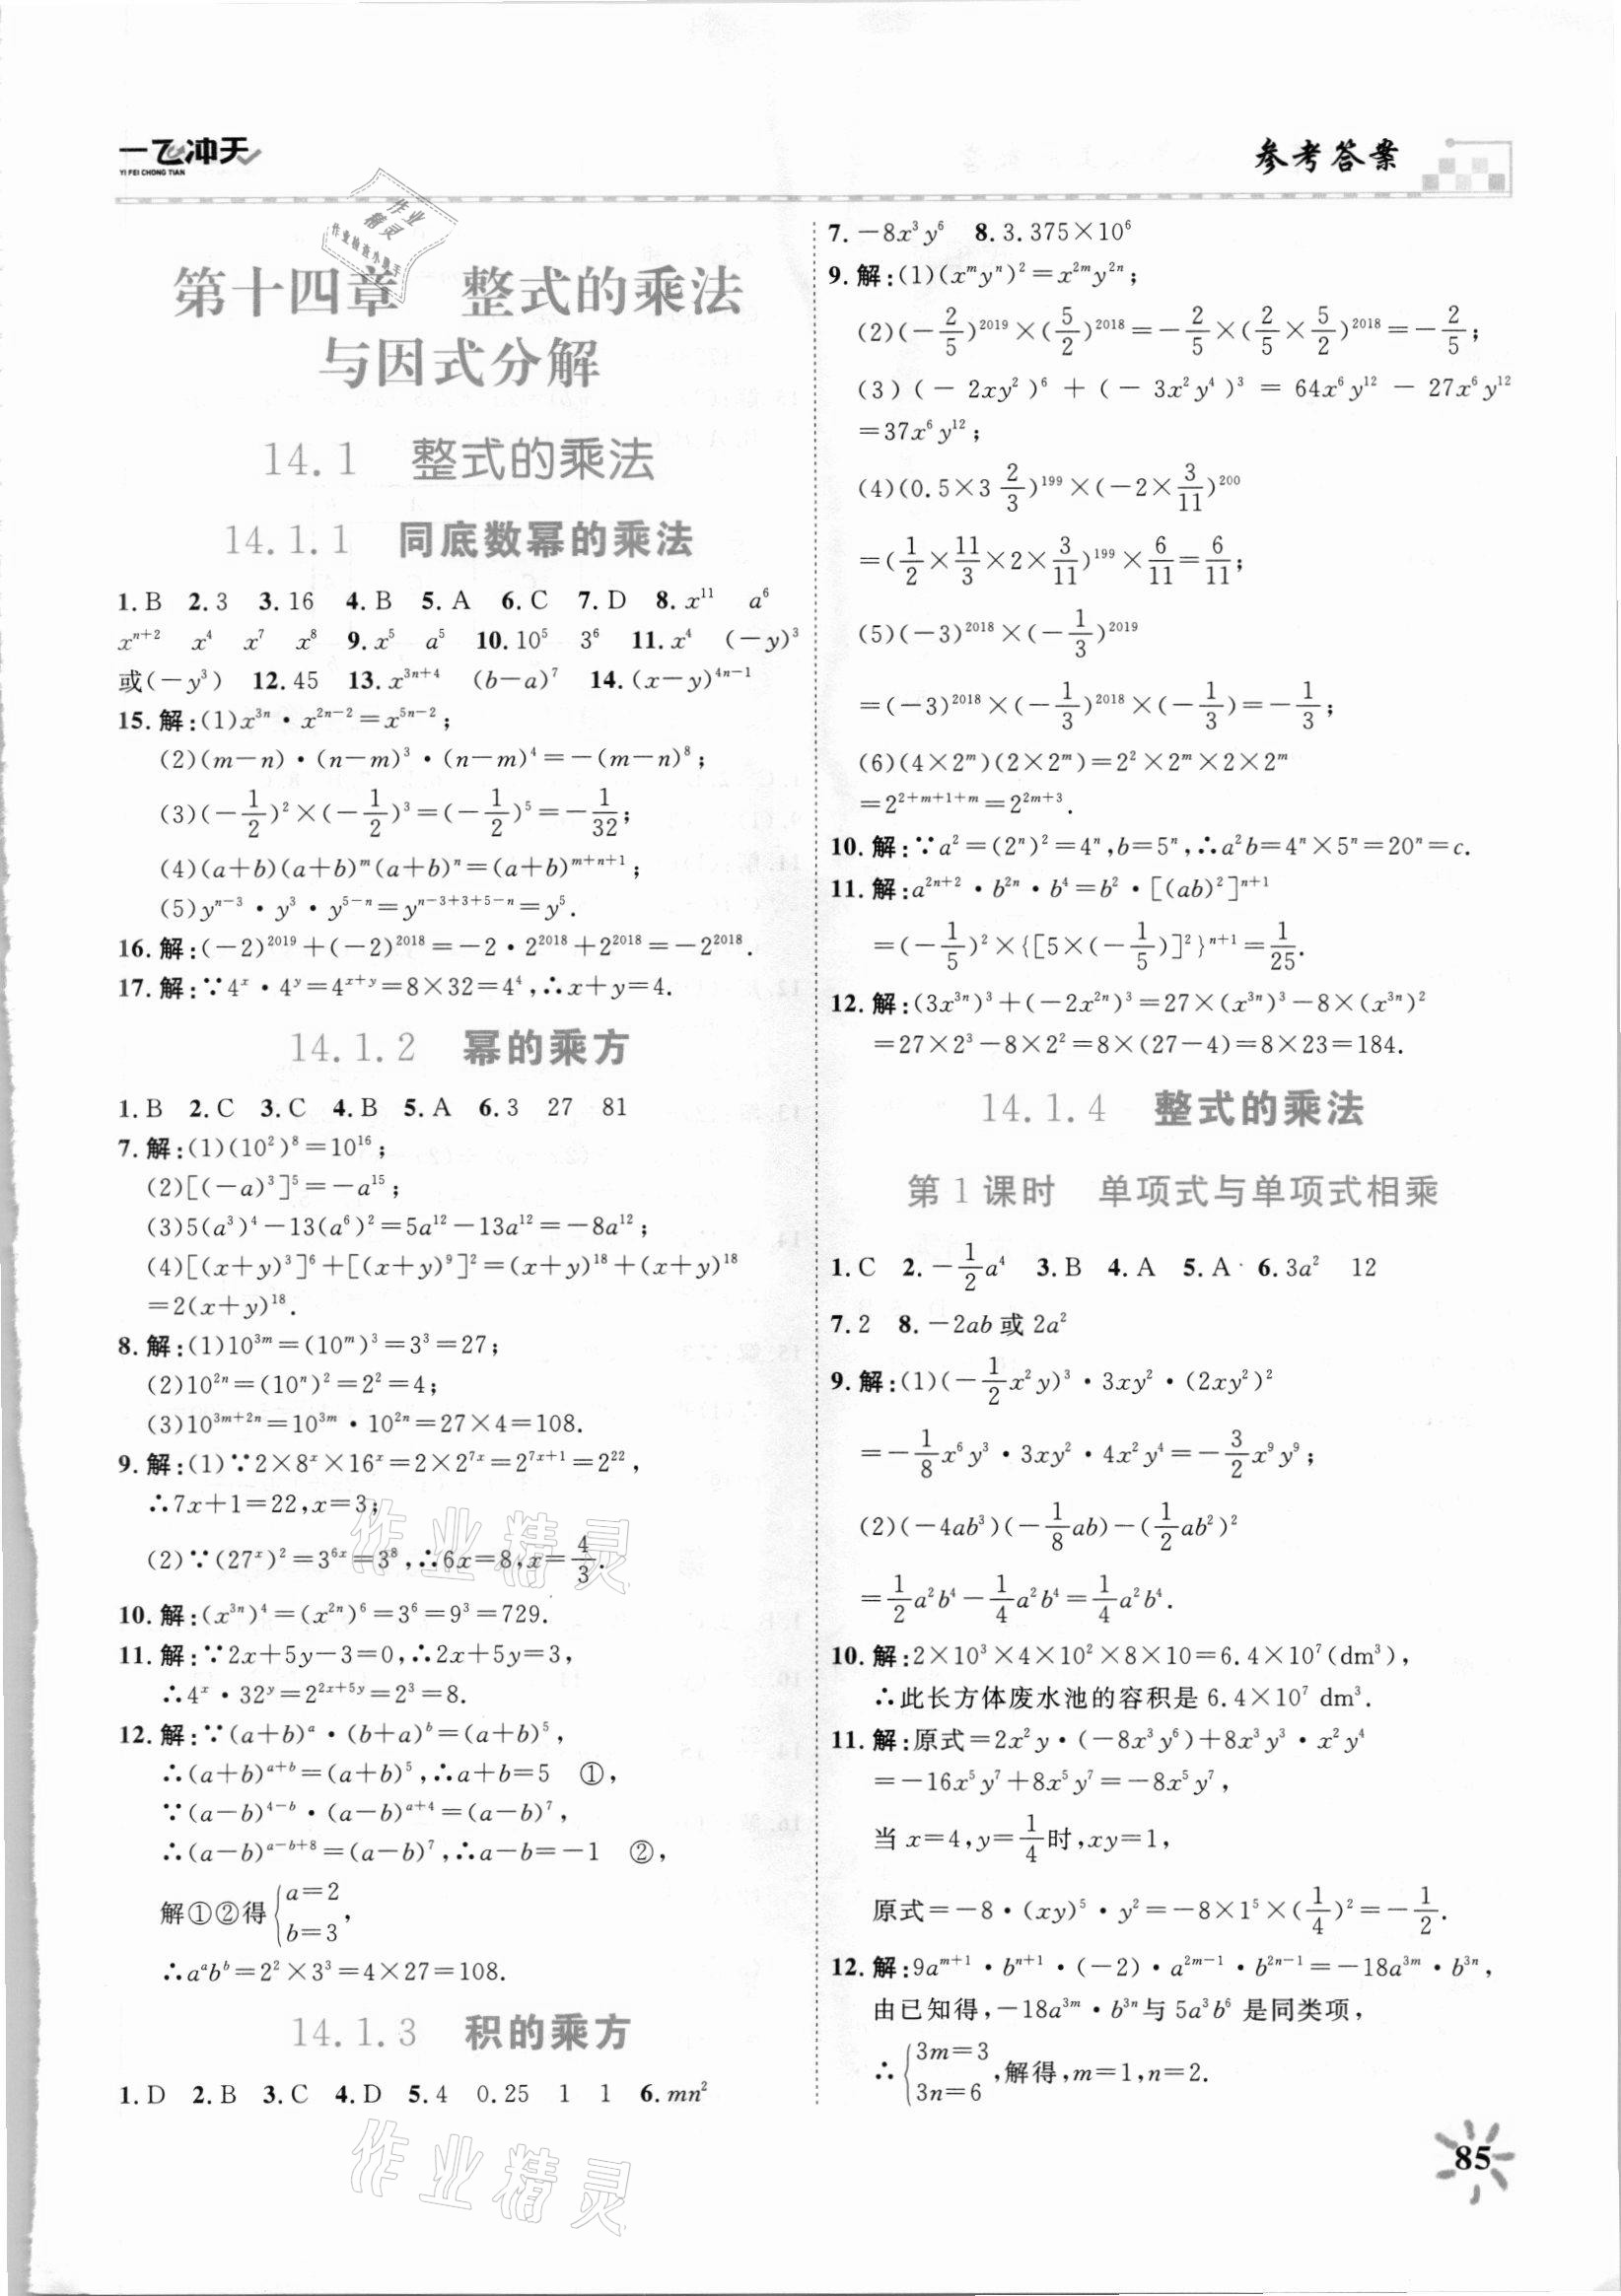 一飞冲天
YI FEI CHONG TIAN
参考答案
作业
精灵
作业检查小助手
第十四章 整式的乘法
与因式分解
14.1 整式的乘法
14.1.1 同底数幂的乘法
1.B 2.3 3.16 4.B 5.A 6.C 7.D 8.x¹¹ a⁶
xⁿ⁺² x⁴ x⁷ x⁸ 9.x⁵ a⁵ 10.10⁵ 3⁶ 11.x⁴ (−y)³
或(−y³) 12.45 13.x³ⁿ⁺⁴ (b−a)⁷ 14.(x−y)⁴ⁿ⁻¹
15.解:(1)x³ⁿ·x²ⁿ⁻²=x⁵ⁿ⁻²;
(2)(m−n)·(n−m)³·(n−m)⁴=−(m−n)⁸;
(3)(−1/2)²×(−1/2)³=(−1/2)⁵=−1/32;
(4)(a+b)(a+b)ᵐ(a+b)ⁿ=(a+b)ᵐ⁺ⁿ⁺¹;
(5)yⁿ⁻³·y³·y⁵⁻ⁿ=yⁿ⁻³⁺³⁺⁵⁻ⁿ=y⁵.
16.解:(−2)²⁰¹⁹+(−2)²⁰¹⁸=−2·2²⁰¹⁸+2²⁰¹⁸=−2²⁰¹⁸.
17.解:∵4ˣ·4ʸ=4ˣ⁺ʸ=8×32=4⁴,∴x+y=4.
14.1.2 幂的乘方
1.B 2.C 3.C 4.B 5.A 6.3 27 81
7.解:(1)(10²)⁸=10¹⁶;
(2)[(−a)³]⁵=−a¹⁵;
(3)5(a³)⁴−13(a⁶)²=5a¹²−13a¹²=−8a¹²;
(4)[(x+y)³]⁶+[(x+y)⁹]²=(x+y)¹⁸+(x+y)¹⁸
=2(x+y)¹⁸.
8.解:(1)10³ᵐ=(10ᵐ)³=3³=27;
(2)10²ⁿ=(10ⁿ)²=2²=4;
(3)10³ᵐ⁺²ⁿ=10³ᵐ·10²ⁿ=27×4=108.
9.解:(1)∵2×8ˣ×16ˣ=2×2⁷ˣ=2⁷ˣ⁺¹=2²²,
∴7x+1=22,x=3;
(2)∵(27ˣ)²=3⁶ˣ=3⁸,∴6x=8,x=4/3.
10.解:(x³ⁿ)⁴=(x²ⁿ)⁶=3⁶=9³=729.
11.解:∵2x+5y−3=0,∴2x+5y=3,
∴4ˣ·32ʸ=2²ˣ⁺⁵ʸ=2³=8.
12.解:∵(a+b)ᵃ·(b+a)ᵇ=(a+b)⁵,
∴(a+b)ᵃ⁺ᵇ=(a+b)⁵,∴a+b=5 ①,
∵(a−b)⁴⁻ᵇ·(a−b)ᵃ⁺⁴=(a−b)⁷,
∴(a−b)ᵃ⁻ᵇ⁺⁸=(a−b)⁷,∴a−b=−1 ②,
解①②得{a=2
b=3,
∴aᵃbᵇ=2²×3³=4×27=108.
14.1.3 积的乘方
1.D 2.B 3.C 4.D 5.4 0.25 1 1 6.mn²
7.−8x³y⁶ 8.3.375×10⁶
9.解:(1)(xᵐyⁿ)²=x²ᵐy²ⁿ;
(2)(−2/5)²⁰¹⁹×(5/2)²⁰¹⁸=−2/5×(2/5×5/2)²⁰¹⁸=−2/5;
(3)(−2xy²)⁶+(−3x²y⁴)³=64x⁶y¹²−27x⁶y¹²
=37x⁶y¹²;
(4)(0.5×3 2/3)¹⁹⁹×(−2×3/11)²⁰⁰
=(1/2×11/3×2×3/11)¹⁹⁹×6/11=6/11;
(5)(−3)²⁰¹⁸×(−1/3)²⁰¹⁹
=(−3)²⁰¹⁸×(−1/3)²⁰¹⁸×(−1/3)=−1/3;
(6)(4×2ᵐ)(2×2ᵐ)=2²×2ᵐ×2×2ᵐ
=2²⁺ᵐ⁺¹⁺ᵐ=2²ᵐ⁺³.
10.解:∵a²=(2ⁿ)²=4ⁿ,b=5ⁿ,∴a²b=4ⁿ×5ⁿ=20ⁿ=c.
11.解:a²ⁿ⁺²·b²ⁿ·b⁴=b²·[(ab)²]ⁿ⁺¹
=(−1/5)²×{[5×(−1/5)]²}ⁿ⁺¹=1/25.
12.解:(3x³ⁿ)³+(−2x²ⁿ)³=27×(x³ⁿ)³−8×(x³ⁿ)²
=27×2³−8×2²=8×(27−4)=8×23=184.
14.1.4 整式的乘法
第1课时 单项式与单项式相乘
1.C 2.−1/2a⁴ 3.B 4.A 5.A 6.3a² 12
7.2 8.−2ab或2a²
9.解:(1)(−1/2x²y)³·3xy²·(2xy²)²
=−1/8x⁶y³·3xy²·4x²y⁴=−3/2x⁹y⁹;
(2)(−4ab³)(−1/8ab)−(1/2ab²)²
=1/2a²b⁴−1/4a²b⁴=1/4a²b⁴.
10.解:2×10³×4×10²×8×10=6.4×10⁷(dm³),
∴此长方体废水池的容积是6.4×10⁷ dm³.
11.解:原式=2x²y·(−8x³y⁶)+8x³y³·x²y⁴
=−16x⁵y⁷+8x⁵y⁷=−8x⁵y⁷,
当x=4,y=1/4时,xy=1,
原式=−8·(xy)⁵·y²=−8×1⁵×(1/4)²=−1/2.
12.解:9aᵐ⁺¹·bⁿ⁺¹·(−2)·a²ᵐ⁻¹·b²ⁿ⁻¹=−18a³ᵐ·b³ⁿ,
由已知得,−18a³ᵐ·b³ⁿ与5a³b⁶是同类项,
∴{3m=3
3n=6,解得,m=1,n=2.
作业精灵
作业精灵
85